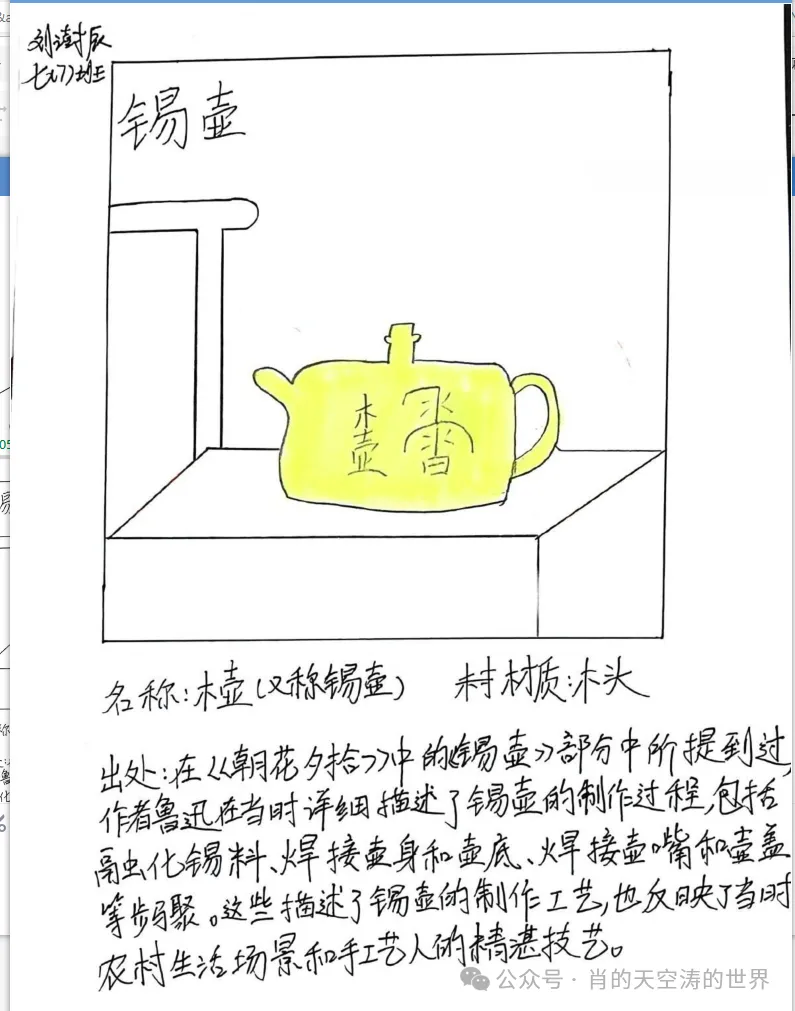 刘澍辰
七(7)班
锡壶
木壶
名称:木壶(又称锡壶) 材质:木头
出处:在《朝花夕拾》中的《锡壶》部分中所提到过,
作者鲁迅在当时详细描述了锡壶的制作过程,包括
融化锡料、焊接壶身和壶底、焊接壶嘴和壶盖
等步骤。这些描述了锡壶的制作工艺,也反映了当时
农村生活场景和手工艺人的精湛技艺。
公众号·肖的天空涛的世界